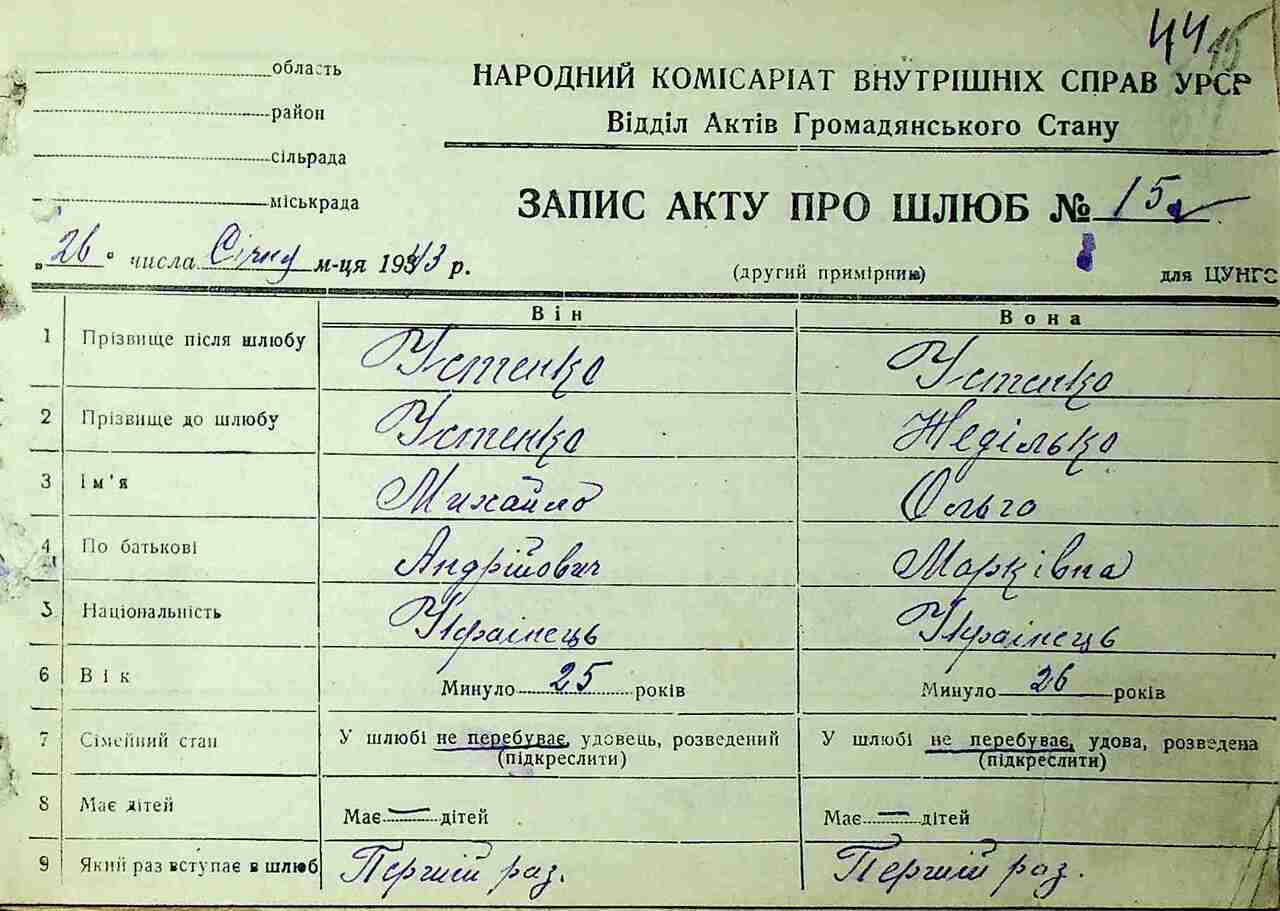 44 15
область
район
сільрада
міськрада
НАРОДНИЙ КОМІСАРІАТ ВНУТРІШНІХ СПРАВ УРСР
Відділ Актів Громадянського Стану
ЗАПИС АКТУ ПРО ШЛЮБ № 15
„26" числа Січну м-ця 1943 р.
(другий примірник) для ЦУНГО
Він Вона
1 Прізвище після шлюбу Устенко Устенко
2 Прізвище до шлюбу Устенко Неділько
3 Ім'я Михайло Ольга
4 По батькові Андрійович Марківна
5 Національність Українець Українець
6 Вік Минуло 25 років Минуло 26 років
7 Сімейний стан У шлюбі не перебуває, удовець, розведений У шлюбі не перебуває, удова, розведена
(підкреслити) (підкреслити)
8 Має дітей Має — дітей Має — дітей
9 Який раз вступає в шлюб Перший раз. Перший раз.